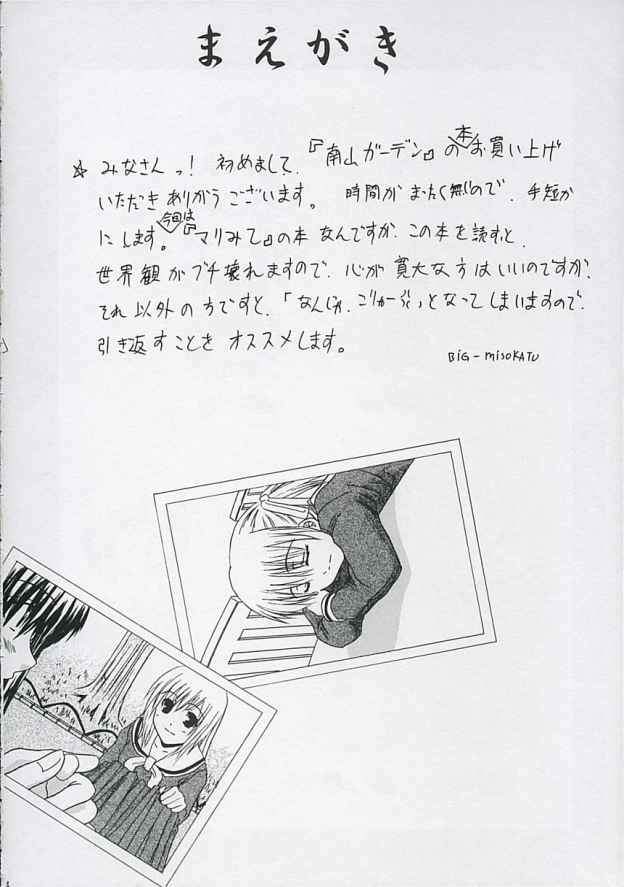 まえがき
☆ みなさんっ! 初めまして、『南山ガーデン』の本お買い上げ
いただきありがうございます。 時間がまったく無いので、手短か
にします。今回は『マリみて』の本なんですが、この本を読すと、
世界観がブチ壊れますので、心が寛大な方はいいのですが、
それ以外の方ですと、「なんじゃ、こりゃーっ!」となってしまいますので、
引き返すことをオススメします。
BiG-misoKATU